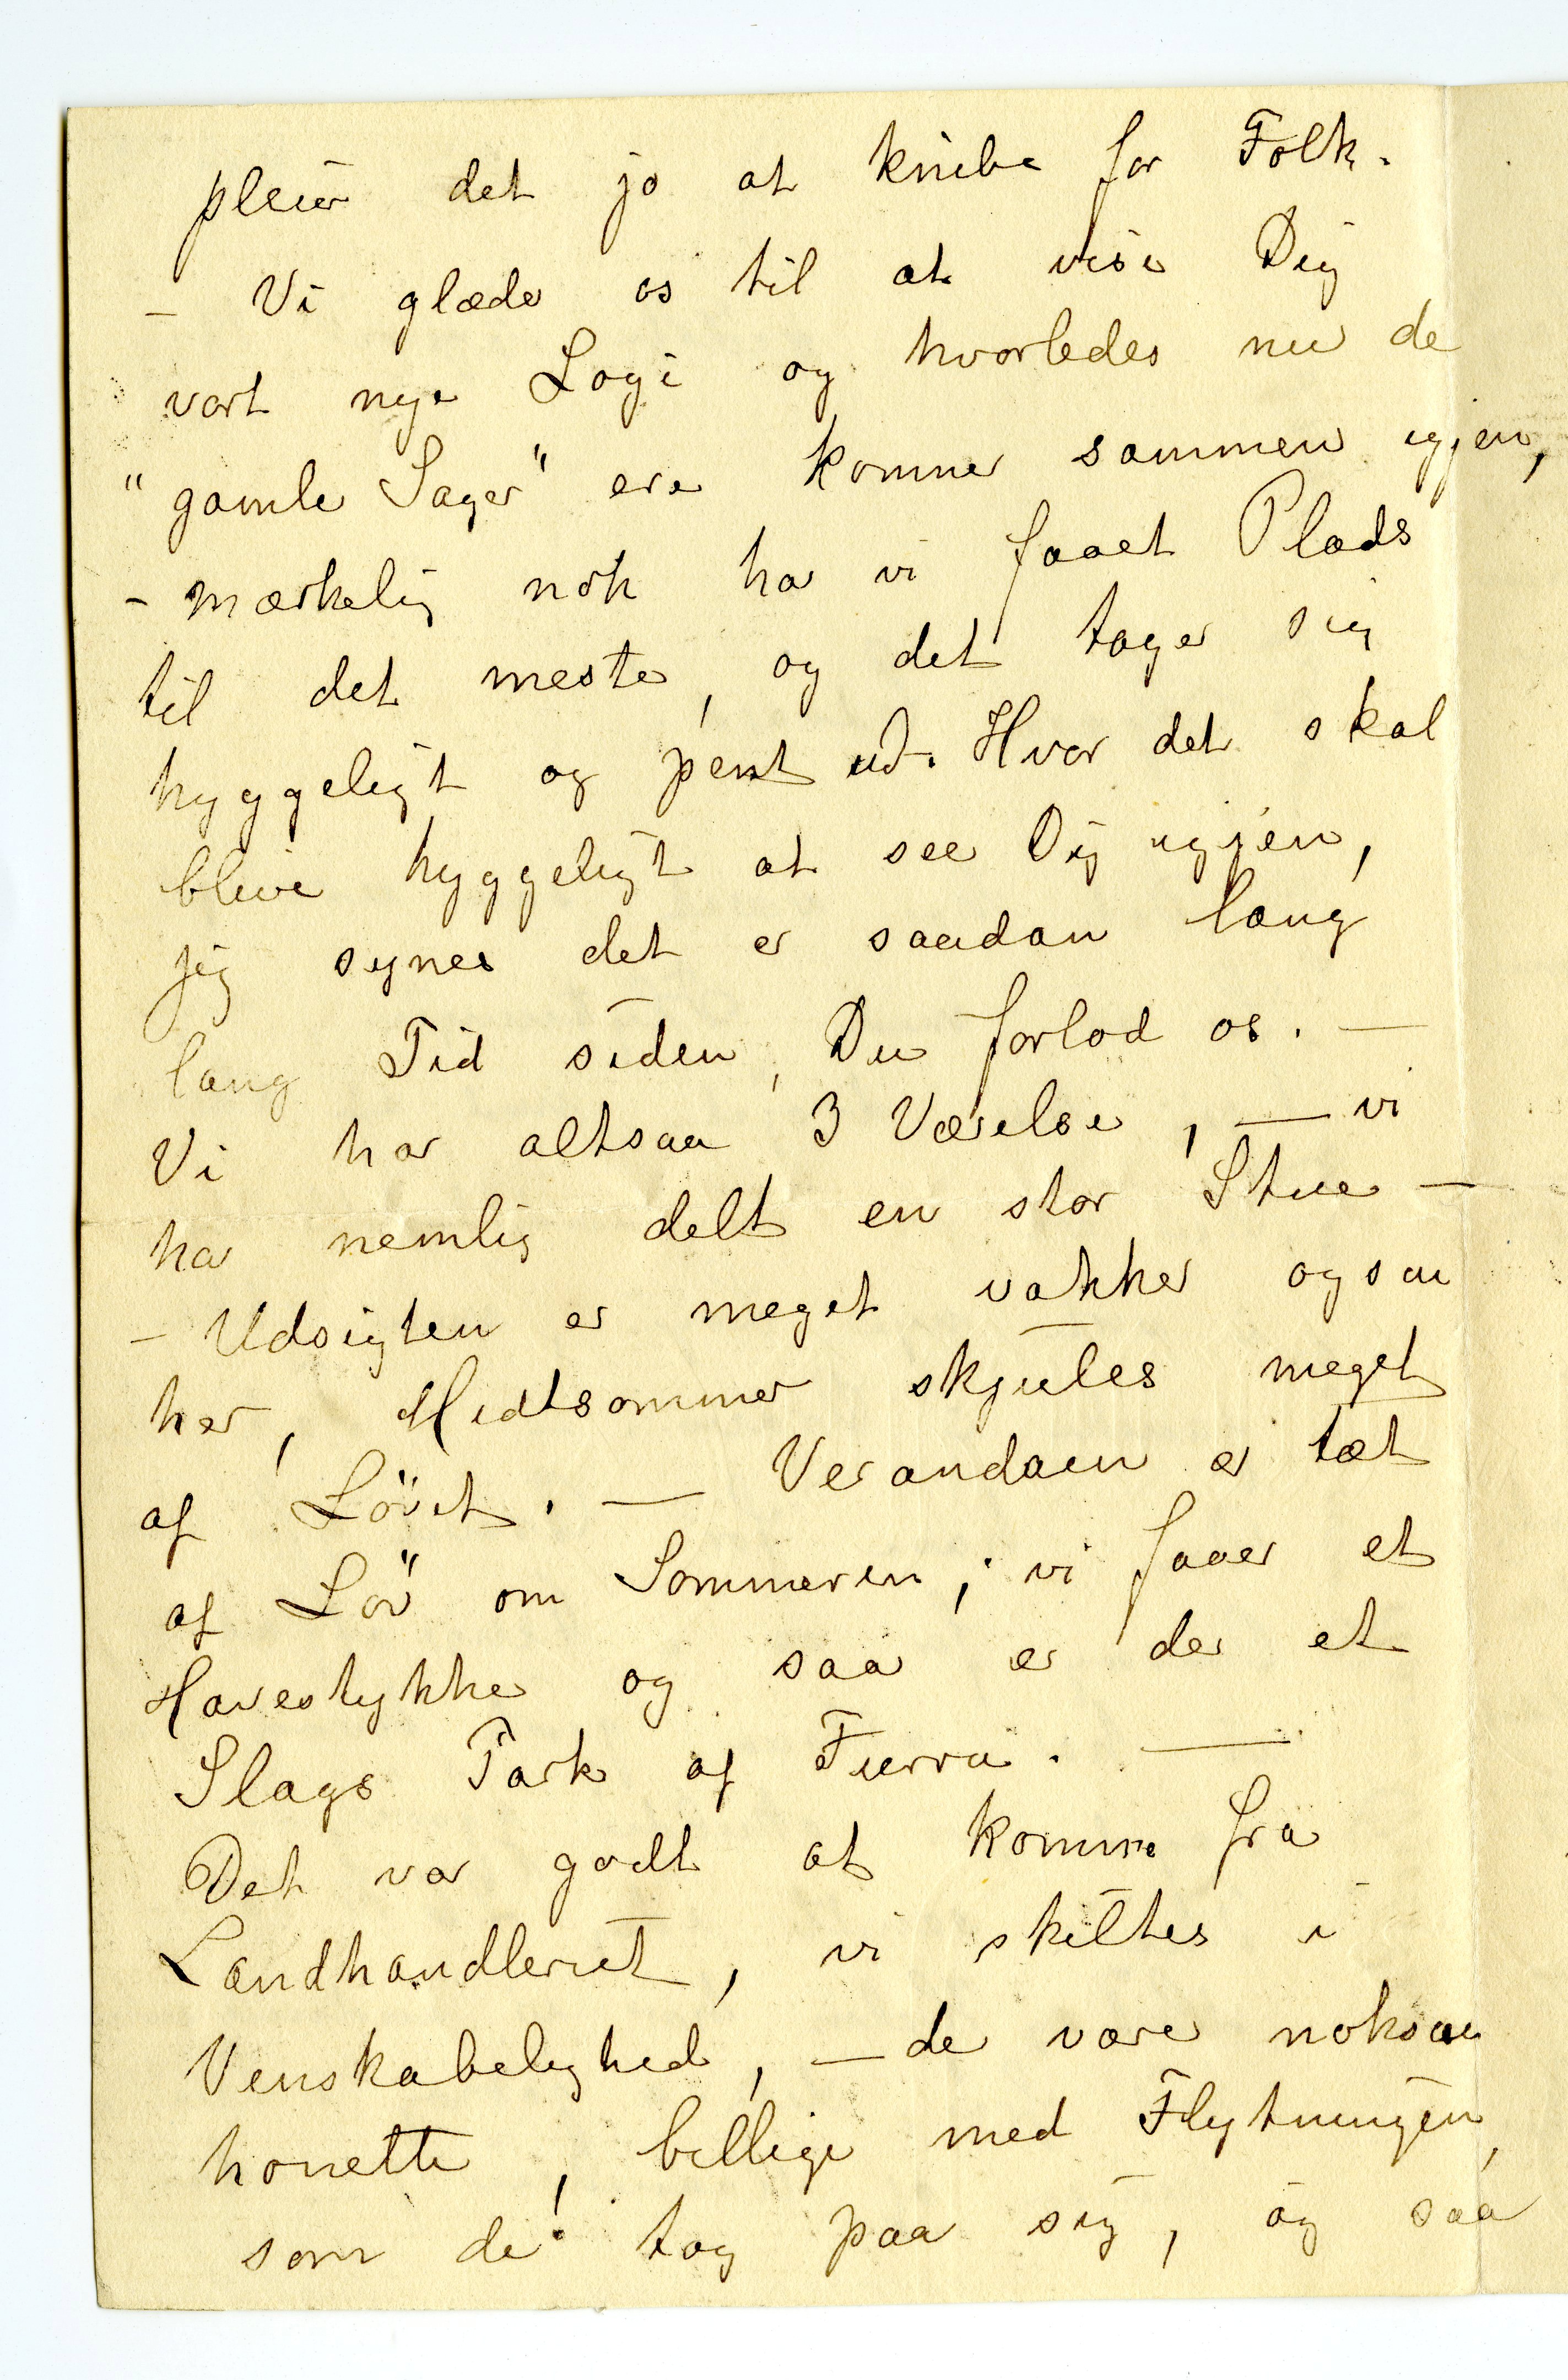 pleier det jo at knibe for Folk.
– Vi glæde os til at vise Dig
vort nye Logi og hvorledes nu de
"gamle Sager" ere komne sammen igjen,
– mærkelig nok har vi faaet Plads
til det meste, og det tager sig
hyggeligt og pent ud. Hvor det skal
blive hyggeligt at see Dig igjen,
jeg synes det er saadan lang
lang Tid siden, Du forlod os. —
Vi har altsaa 3 Værelse, — vi
har nemlig delt en stor Stue —
– Udsigten er meget vakker ogsaa
her, Midtsommer skjules meget
af Løvet. — Verandaen er tæt
af Løv om Sommeren; vi faaer et
Havestykke og saa er der et
Slags Park af Furru. —
Det var godt at komme fra
Landhandleriet, vi skiltes i
Venskabelighed, — de vare noksaa
honette, billige med Flytningen,
som de tog paa sig, og saa